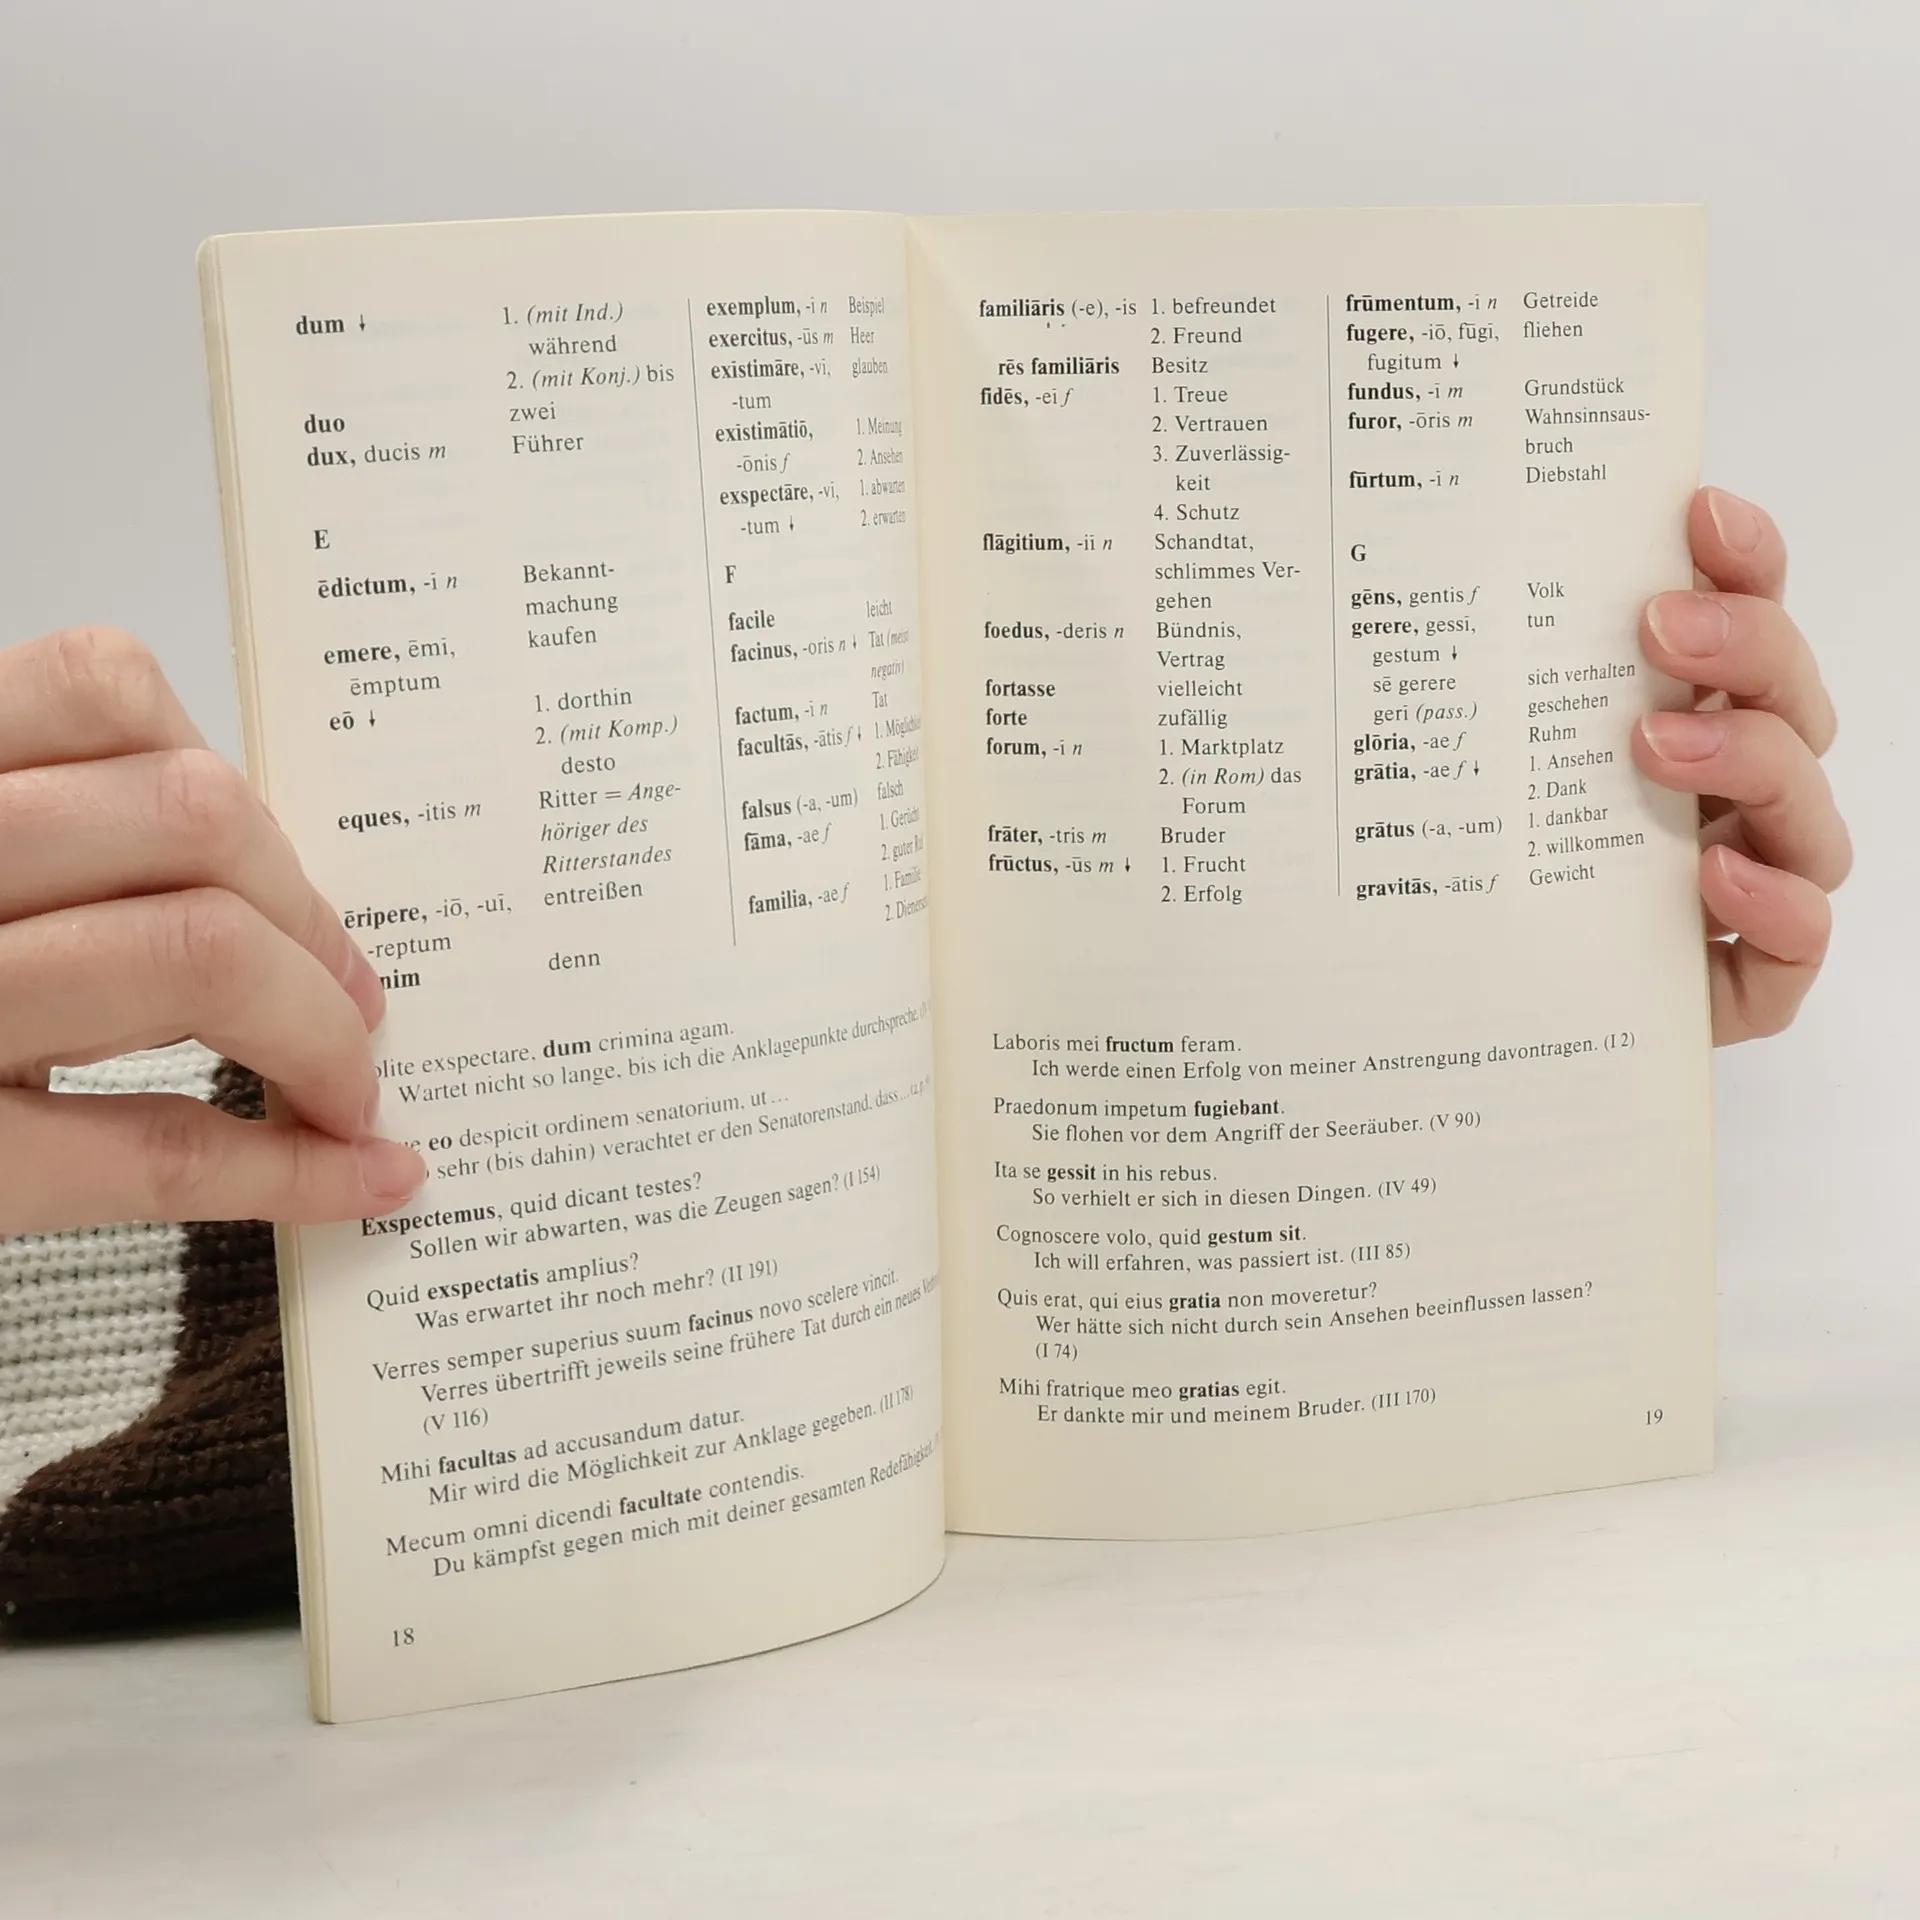 dum ↓ 1. (mit Ind.)
während
2. (mit Konj.) bis
duo zwei
dux, ducis m Führer
E
ēdictum, -ī n Bekannt-
machung
emere, ēmī, kaufen
ēmptum
eō ↓ 1. dorthin
2. (mit Komp.)
desto
eques, -itis m Ritter = Ange-
höriger des
Ritterstandes
ēripere, -iō, -uī, entreißen
-reptum
nim denn
exemplum, -ī n Beispiel
exercitus, -ūs m Heer
exīstimāre, -vī, glauben
-tum
exīstimātiō, 1. Meinung
-ōnis f 2. Ansehen
exspectāre, -vī, 1. abwarten
-tum ↓ 2. erwarten
F
facile leicht
facinus, -oris n ↓ Tat (meist
negativ)
factum, -ī n Tat
facultās, -ātis f ↓ 1.
2. Fähigkeit
falsus (-a, -um) falsch
fāma, -ae f 1. Gerücht
2. guter
familia, -ae f 1. Familie
2.
olite exspectare, dum crimina agam.
Wartet nicht so lange, bis ich die Anklagepunkte durchspreche.
eo despicit ordinem senatorium, ut ...
sehr (bis dahin) verachtet er den Senatorenstand, dass ...
Exspectemus, quid dicant testes?
Sollen wir abwarten, was die Zeugen sagen? (I 154)
Quid exspectatis amplius?
Was erwartet ihr noch mehr? (II 191)
Verres semper superius suum facinus novo scelere vincit.
Verres übertrifft jeweils seine frühere Tat durch ein neues
(V 116)
Mihi facultas ad accusandum datur.
Mir wird die Möglichkeit zur Anklage gegeben. (II 178)
Mecum omni dicendi facultate contendis.
Du kämpfst gegen mich mit deiner gesamten Redefähigkeit.
18
familiāris (-e), -is 1. befreundet
2. Freund
rēs familiāris Besitz
fidēs, -eī f 1. Treue
2. Vertrauen
3. Zuverlässig-
keit
4. Schutz
flāgitium, -iī n Schandtat,
schlimmes Ver-
gehen
foedus, -deris n Bündnis,
Vertrag
fortasse vielleicht
forte zufällig
forum, -ī n 1. Marktplatz
2. (in Rom) das
Forum
frāter, -tris m Bruder
frūctus, -ūs m ↓ 1. Frucht
2. Erfolg
frūmentum, -ī n Getreide
fugere, -iō, fūgī, fliehen
fugitum ↓
fundus, -ī m Grundstück
furor, -ōris m Wahnsinnsaus-
bruch
fūrtum, -ī n Diebstahl
G
gēns, gentis f Volk
gerere, gessī, tun
gestum ↓
sē gerere sich verhalten
gerī (pass.) geschehen
glōria, -ae f Ruhm
grātia, -ae f ↓ 1. Ansehen
2. Dank
grātus (-a, -um) 1. dankbar
2. willkommen
gravitās, -ātis f Gewicht
Laboris mei fructum feram.
Ich werde einen Erfolg von meiner Anstrengung davontragen. (I 2)
Praedonum impetum fugiebant.
Sie flohen vor dem Angriff der Seeräuber. (V 90)
Ita se gessit in his rebus.
So verhielt er sich in diesen Dingen. (IV 49)
Cognoscere volo, quid gestum sit.
Ich will erfahren, was passiert ist. (III 85)
Quis erat, qui eius gratia non moveretur?
Wer hätte sich nicht durch sein Ansehen beeinflussen lassen?
(I 74)
Mihi fratrique meo gratias egit.
Er dankte mir und meinem Bruder. (III 170)
19